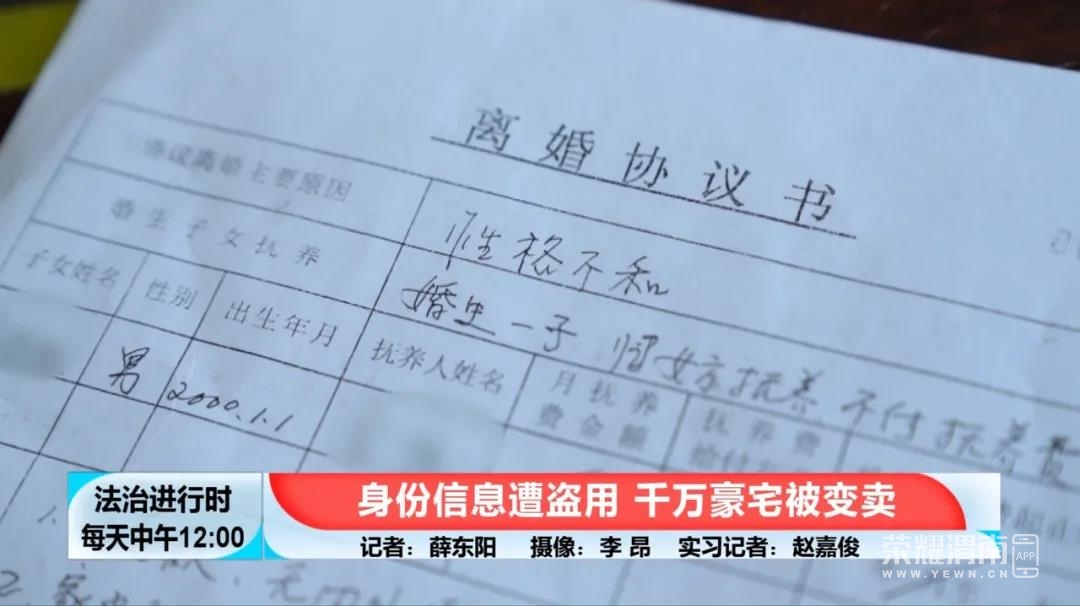 离婚协议书
协议离婚主要原因
性格不和
婚生子女抚养
婚生一子 归女方抚养 不付抚养费
子女姓名
性别
出生年月
抚养人姓名
月抚养
费金额
抚养费
给付
男
2000.1.1
法治进行时
每天中午12:00
身份信息遭盗用 千万豪宅被变卖
记者：薛东阳 摄像：李昂 实习记者：赵嘉俊
荣耀渭南 APP
WWW.YEWN.CN